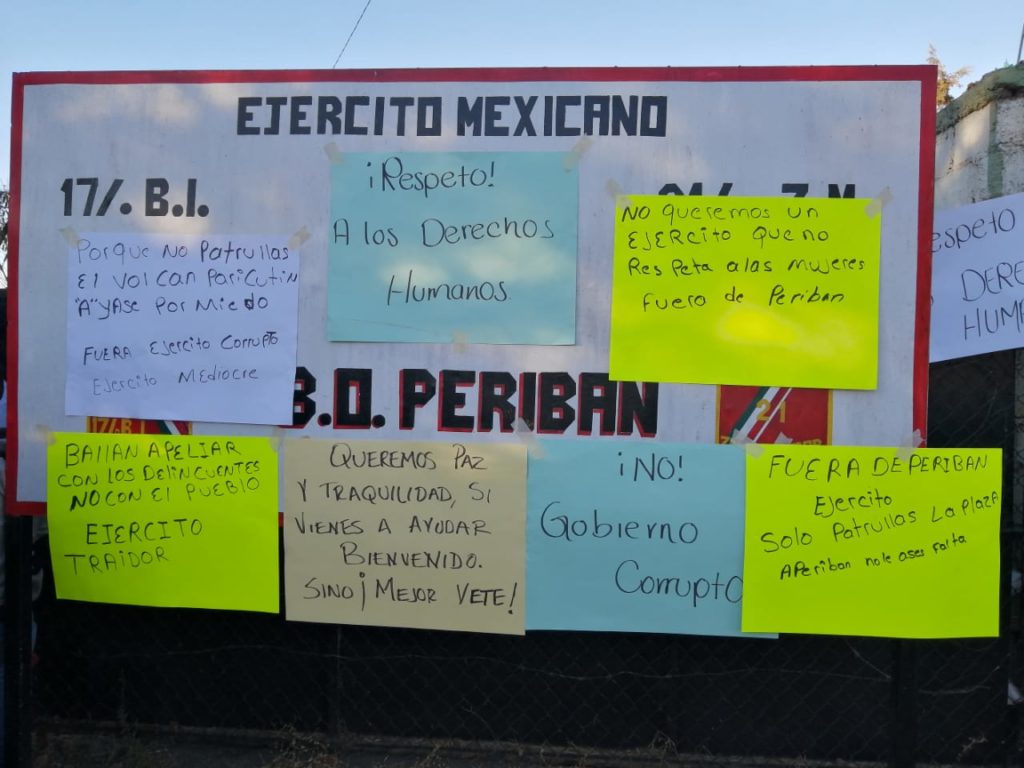 EJERCITO MEXICANO
17/. B.I.
Z.M
B.O. PERIBAN
¡Respeto!
A los Derechos
Humanos
NO Queremos un
EJERCito que no
Respeta a las mujeres
fuera de Periban
Porque No Patrullas
El Volcan Paricutin
"A"yase Por Miedo
FUERA Ejercito Corrupto
Ejercito Mediocre
espeto
DERE
HUM
17/. B.I
21
BAllAN APELIAR
CON LOS DELINCUENTES
NO CON El PUEBLO
EJERCITO
TRAIDOR
QUEREMOS PAZ
Y TRAQUILIDAD, SI
VIENES A AYUDAR
BIENVENIDO.
SINO¡ MEJOR VETE!
¡NO!
Gobierno
Corrupto
FUERA DE PERIBAN
Ejercito
Solo Patrullas La Plaza
APeriban no le ases falta